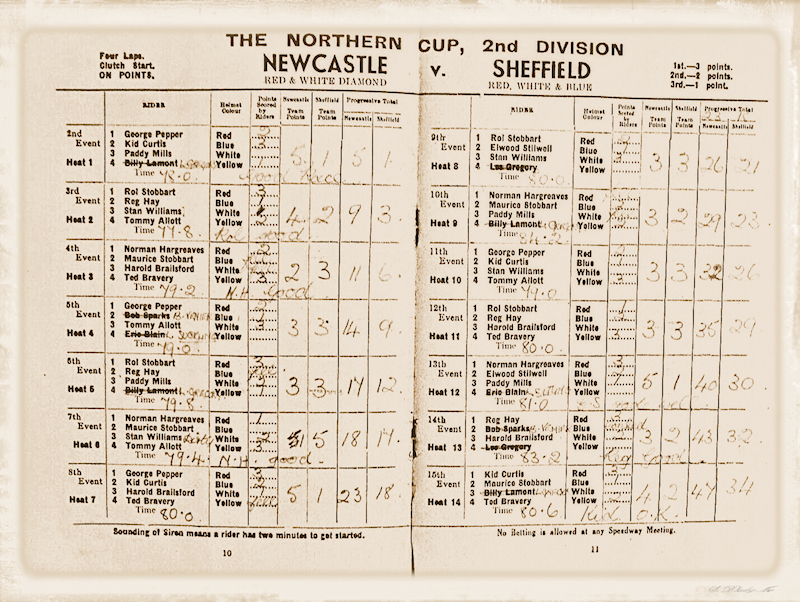 THE NORTHERN CUP, 2nd DIVISION
Four Laps.
Clutch Start.
ON POINTS.
NEWCASTLE v. SHEFFIELD
RED & WHITE DIAMOND
RED, WHITE & BLUE
1st.—3 points.
2nd.—2 points.
3rd.—1 point.
RIDER Helmet Colour Points Scored by Riders Newcastle Team Points Sheffield Team Points Progressive Total Newcastle Sheffield
2nd Event Heat 1
1 George Pepper Red
2 Kid Curtis Blue
3 Paddy Mills White
4 Billy Lamont Yellow
5 1 5 1
Time 78.0
3rd Event Heat 2
1 Rol Stobbart Red 3
2 Reg Hay Blue 1
3 Stan Williams White
4 Tommy Allott Yellow
4 2 9 3
Time 77.8 good
4th Event Heat 3
1 Norman Hargreaves Red 2
2 Maurice Stobbart Blue
3 Harold Brailsford White
4 Ted Bravery Yellow
2 3 11 6
Time 79.2 N.H. good
5th Event Heat 4
1 George Pepper Red
2 Bob Sparks Blue
3 Tommy Allott White
4 Eric Blain Yellow
3 3 14 9
Time 79.0
6th Event Heat 5
1 Rol Stobbart Red 3
2 Reg Hay Blue
3 Paddy Mills White
4 Billy Lamont Yellow
3 3 17 12
Time 79.8
7th Event Heat 6
1 Norman Hargreaves Red 1
2 Maurice Stobbart Blue
3 Stan Williams White
4 Tommy Allott Yellow
5 18 17
Time 79.4 N.H. good
8th Event Heat 7
1 George Pepper Red
2 Kid Curtis Blue
3 Harold Brailsford White
4 Ted Bravery Yellow
5 1 23 18
Time 80.0
Sounding of Siren means a rider has two minutes to get started.
10
RIDER Helmet Colour Points Scored by Riders Newcastle Team Points Sheffield Team Points Progressive Total Newcastle Sheffield
9th Event Heat 8
1 Rol Stobbart Red
2 Elwood Stilwell Blue
3 Stan Williams White
4 Les Gregory Yellow
3 3 26 21
Time 80.0
10th Event Heat 9
1 Norman Hargreaves Red
2 Maurice Stobbart Blue
3 Paddy Mills White
4 Billy Lamont Yellow
3 2 29 23
Time
11th Event Heat 10
1 George Pepper Red
2 Kid Curtis Blue
3 Stan Williams White
4 Tommy Allott Yellow
3 3 32 26
Time 79.0
12th Event Heat 11
1 Rol Stobbart Red
2 Reg Hay Blue
3 Harold Brailsford White
4 Ted Bravery Yellow
3 3 35 29
Time 80.0
13th Event Heat 12
1 Norman Hargreaves Red 3
2 Elwood Stilwell Blue
3 Paddy Mills White
4 Eric Blain Yellow
5 1 40 30
Time 81.0
14th Event Heat 13
1 Reg Hay Red
2 Bob Sparks Blue
3 Harold Brailsford White
4 Les Gregory Yellow
3 2 43 32
Time 83.2 Reg good
15th Event Heat 14
1 Kid Curtis Red
2 Maurice Stobbart Blue
3 Billy Lamont White
4 Ted Bravery Yellow
4 2 47 34
Time 80.6 Kid O.K.
No Betting is allowed at any Speedway Meeting.
11